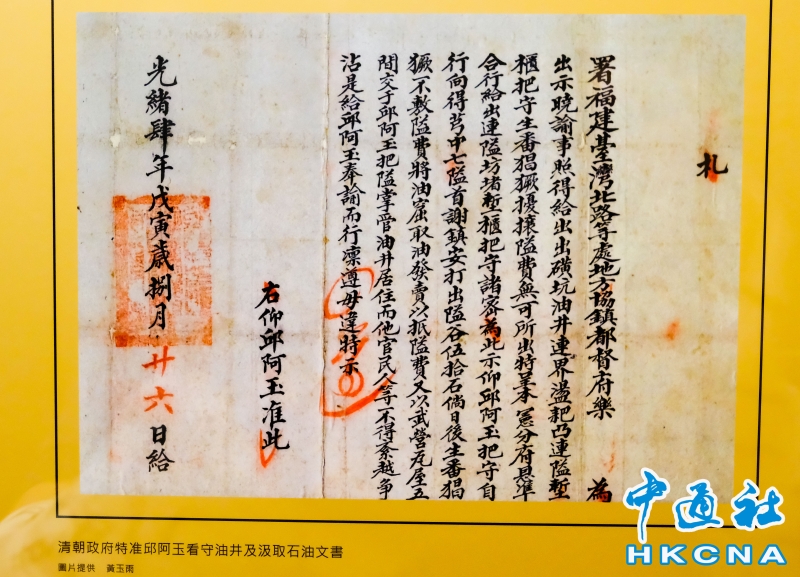 札
署福建臺灣北路等處地方協鎮都督府樂 為
出示曉諭事照得給出出磺坑油井連界盪耙凸連隘暫
櫃把守生番猖獗擾攘隘費無可所出特稟本憲分府具準
合行給出連隘坊堵暫櫃把守諸寮為此示仰邱阿玉把守自
行向得芎中七隘首謝鎮安打出隘谷伍拾石倘日後生番猖
獗不敷隘費將油窟取油發賣以抵隘費又以武營瓦屋五
間交于邱阿玉把隘掌管油井居住而他官民人等不得紊越爭
沾是給邱阿玉奉諭而行凜遵毋違特示
右仰邱阿玉准此
光緒肆年戊寅歲捌月廿六日給
清朝政府特准邱阿玉看守油井及汲取石油文書
圖片提供 黃玉雨
中通社
HKCNA